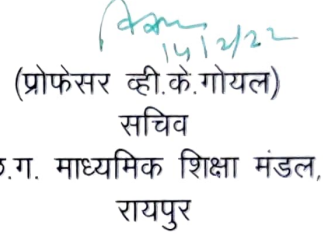 14/2/22
(प्रोफेसर व्ही.के.गोयल)
सचिव
.ग. माध्यमिक शिक्षा मंडल,
रायपुर